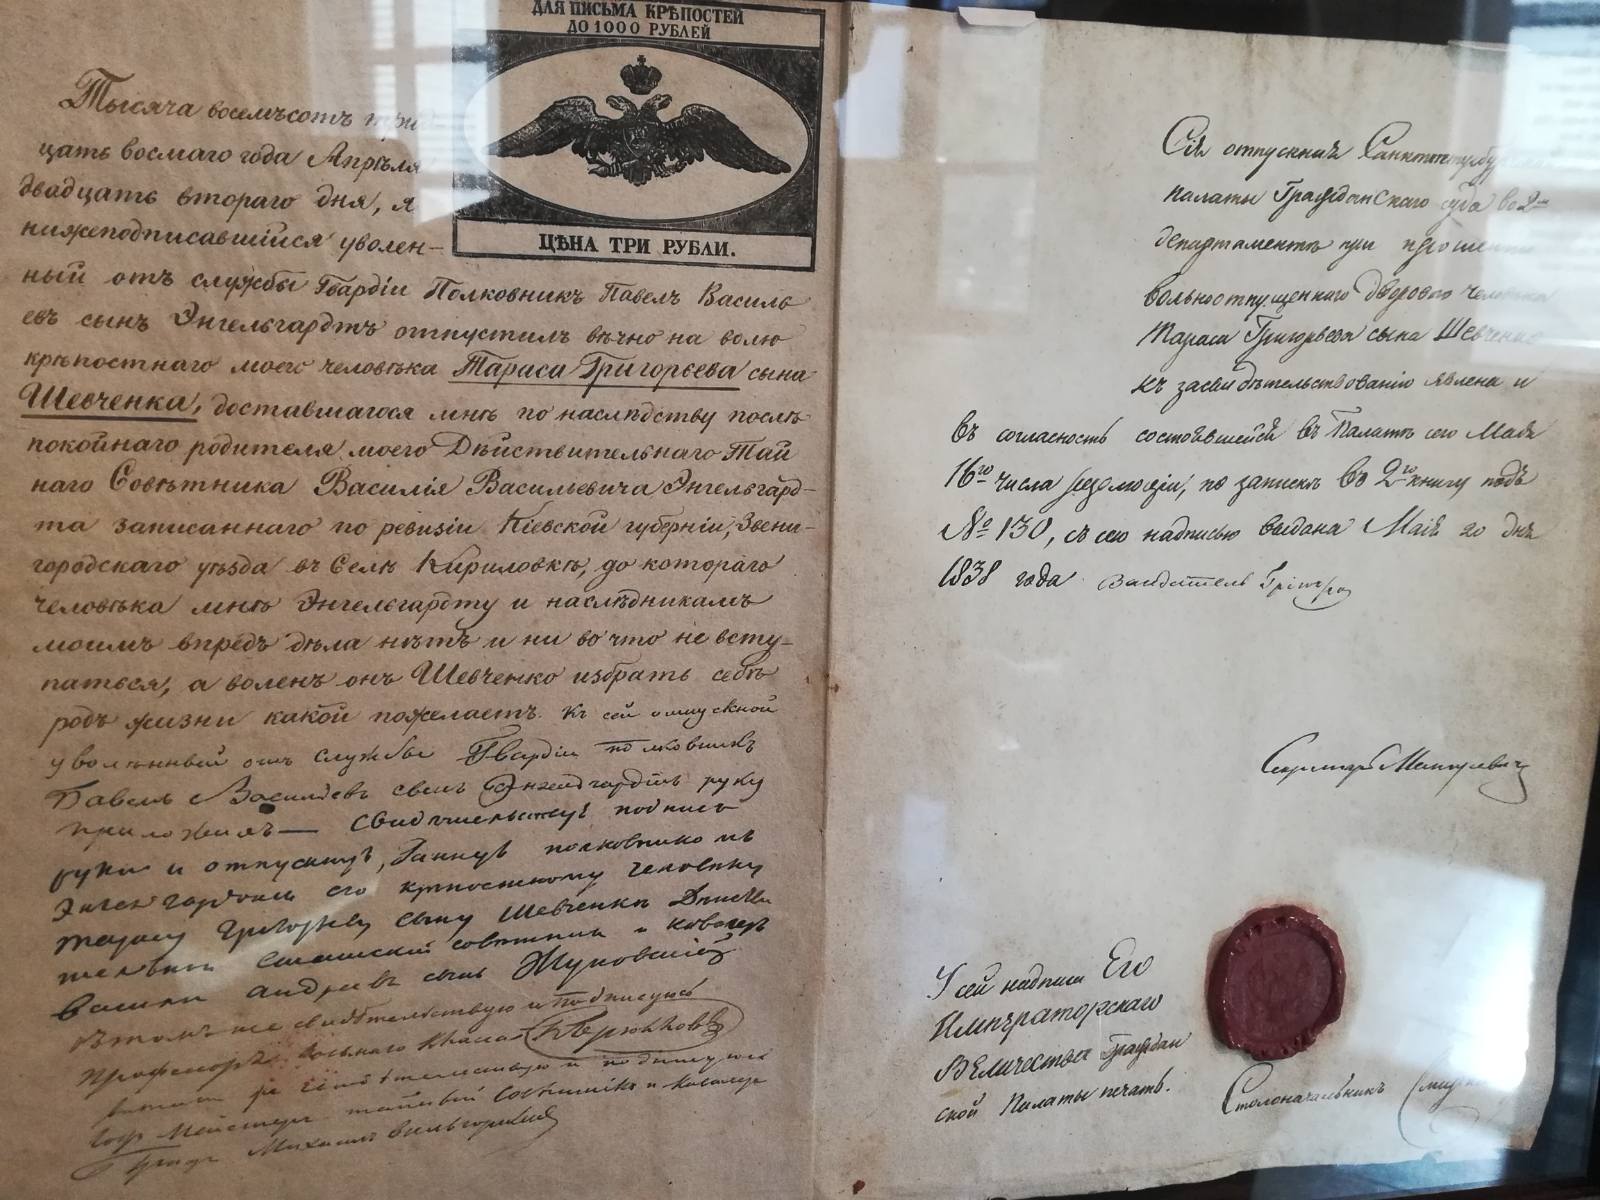 ДЛЯ ПИСЬМА КРѢПОСТЕЙ
ДО 1000 РУБЛЕЙ
ЦѢНА ТРИ РУБЛИ.
Тысяча восемьсотъ трид
цать восмаго года Апрѣля
двадцать втораго дня, я
нижеподписавшійся уволен-
ный отъ службы Гвардіи Полковникъ Павелъ Василь
евъ сынъ Энгельгардтъ отпустилъ вѣчно на волю
крѣпостнаго моего человѣка Тараса Григорьева сына
Шевченка, доставшагося мнѣ по наслѣдству послѣ
покойнаго родителя моего Дѣйствительнаго Тай
наго Совѣтника Василія Васильевича Энгельгард-
та записаннаго по ревизіи Кіевской губерніи, Звени-
городскаго уѣзда въ Селѣ Кириловкѣ, до котораго
человѣка мнѣ Энгельгардту и наслѣдникамъ
моимъ впредь дѣла нѣтъ и ни во что не всту-
паться, а воленъ онъ Шевченко избрать себѣ
родъ жизни какой пожелаетъ. Къ сей отпускной
уволенный отъ службы Гвардіи полковникъ
Павелъ Васильевъ сынъ Энгельгардтъ руку
приложилъ — Свидѣтельствую подпись
руки и отпускную, данную полковникомъ
Энгельгардтомъ его крѣпостному человѣку
Тарасу Григорьеву сыну Шевченкѣ Дѣйстви
тельный Статскій совѣтникъ и кавалеръ
Василій Андреевъ сынъ Жуковскій
Въ томъ же свидѣтельствую и подписуюсь
Профессоръ восьмаго класса К Брюлловъ
въ томъ же свидѣтельствую и подписуюсь
Гоф-Мейстеръ тайный Совѣтникъ и Кавалеръ
Графъ Михаилъ Вельгорскій
Сія отпускная Санктпетербургской
палаты Гражданскаго суда во 2мъ
департаментѣ при прошеніи
вольноотпущеннаго двороваго человѣка
Тараса Григорьева сына Шевченко
къ засвидѣтельствованію явлена и
въ согласность состоявшейся въ Палатѣ сего Мая
16го числа резолюціи, по запискѣ во 2ю книгу подъ
№ 130, съ сею надписью выдана Мая 20 дня
1838 года Засѣдатель
Секретарь
У сей надписи Его
Императорскаго
Величества Граждан
ской Палаты печать.
Столоначальникъ